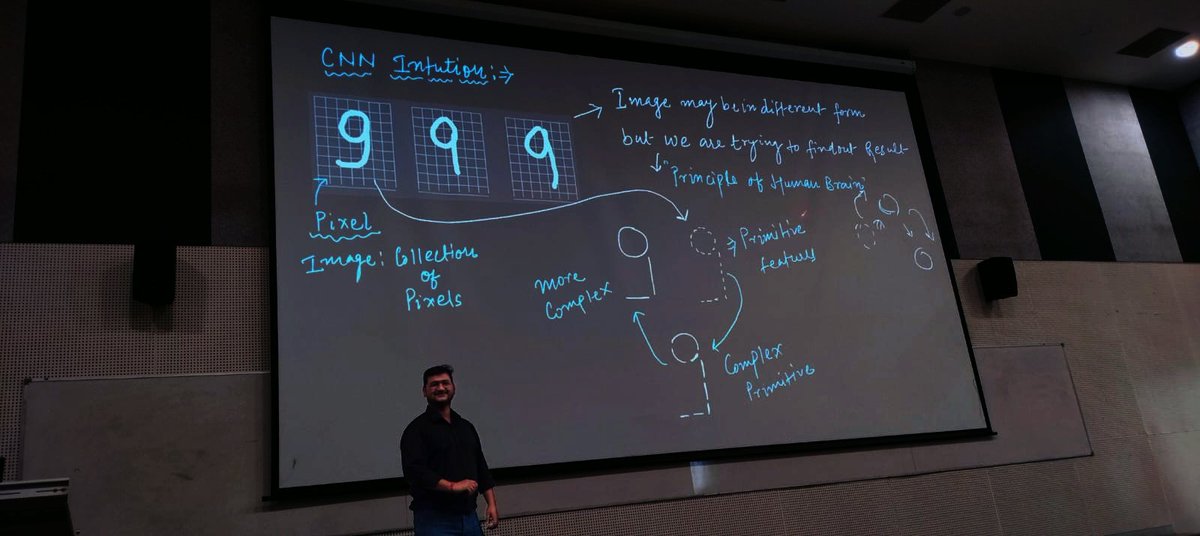 CNN Intution:⇒
9 9 9
→ Image may be in different form
but we are trying to findout Result
↓ "Principle of Human Brain"
Pixel
Image: Collection
of
Pixels
⇒ Primitive
features
more
Complex
Complex
Primitive